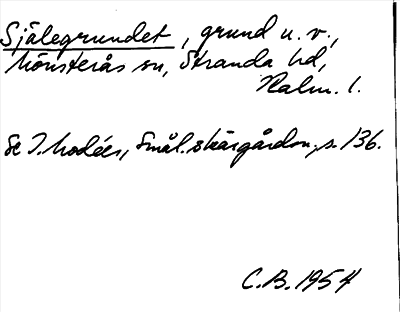 Själegrundet, grund u. v.,
Mönsterås sn, Stranda hd,
Kalm. l.
Se I. Modéer, Smål. skärgårdsn, s. 136.
C.B. 1954